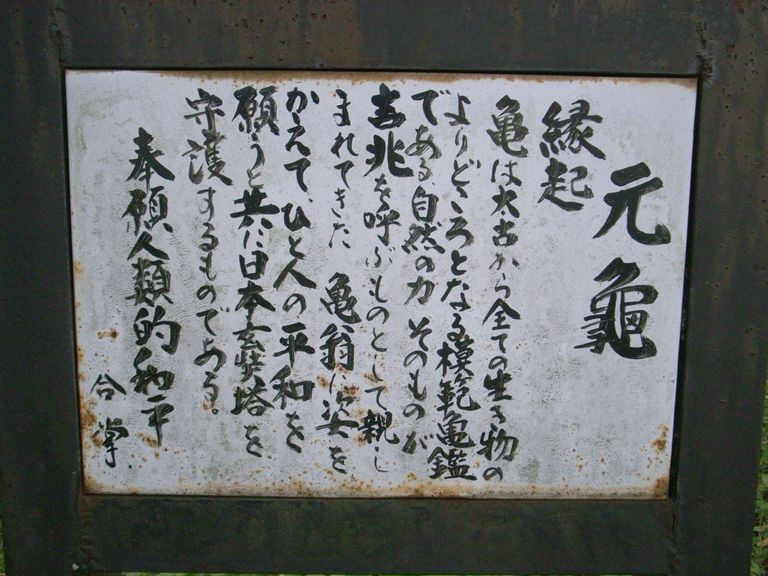 元龜
縁起
亀は太古から全ての生き物の
よりどころとなる模範亀鑑
である自然の力 そのものが
吉兆を呼ぶものとして親し
まれてきた 亀翁に姿を
かえて、ひと人の平和を
願うと共に日本玄奘塔を
守護するものである。
奉願人類的和平
合掌